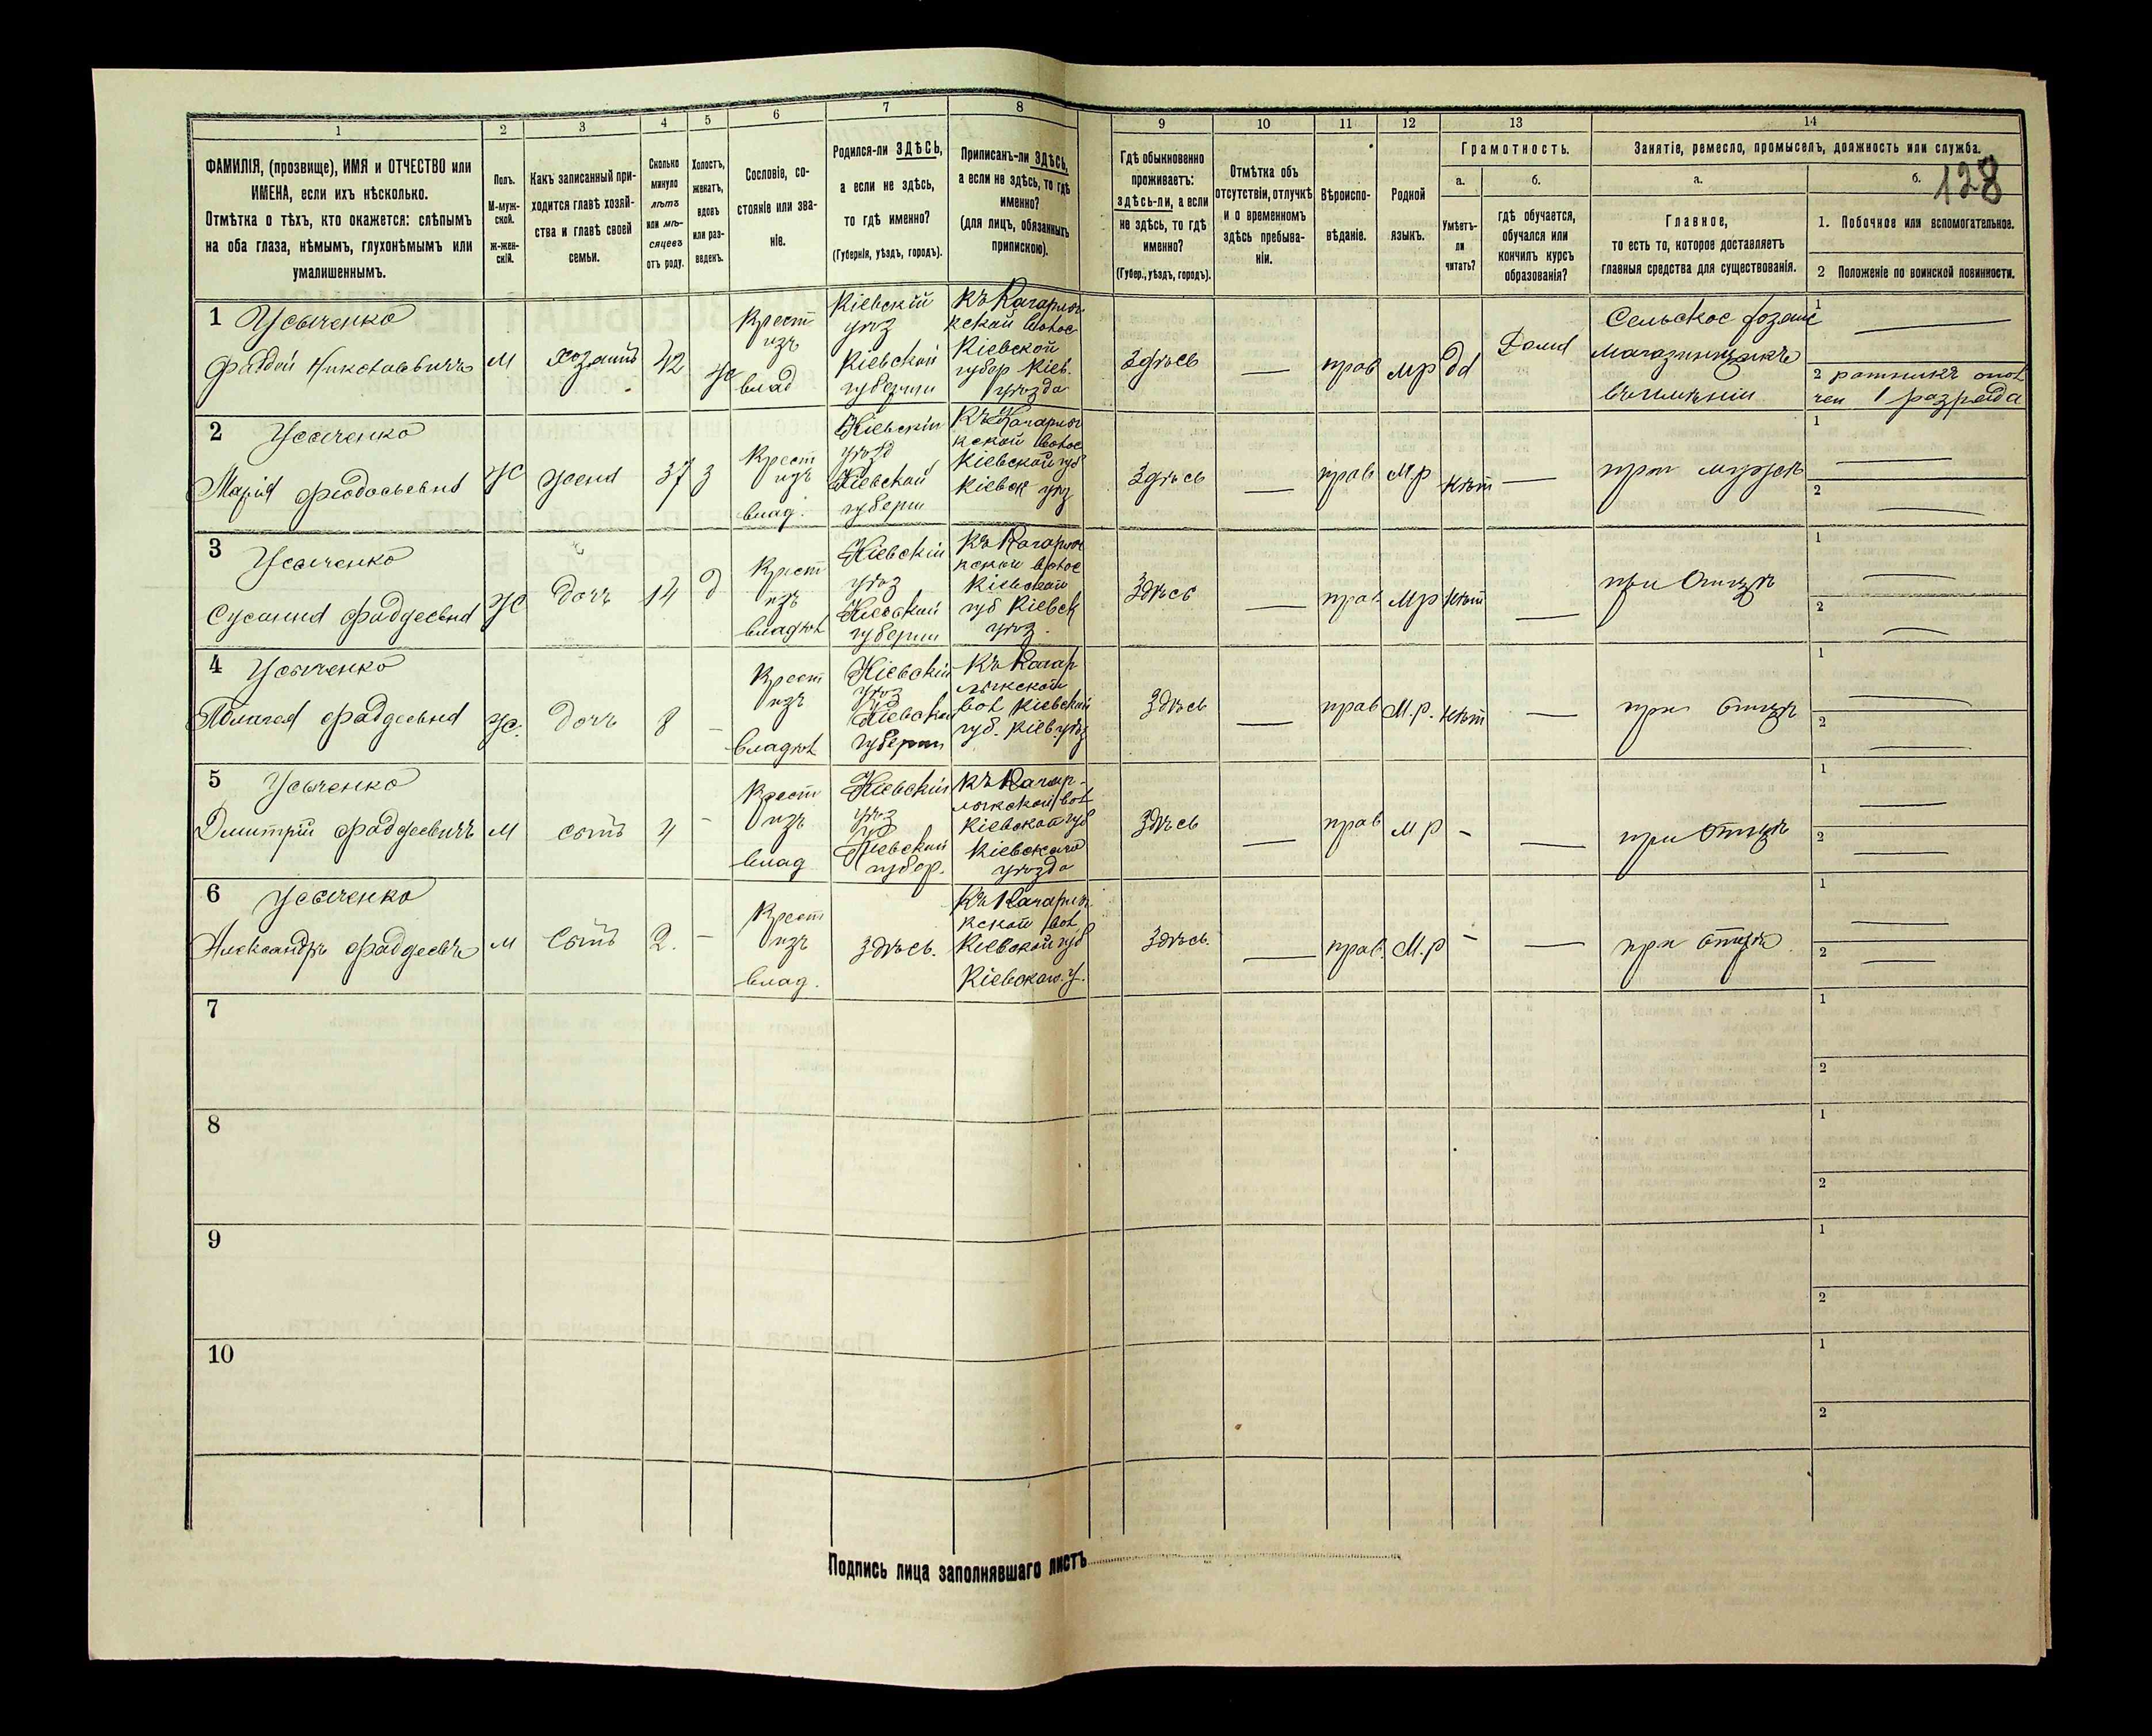 128
1
2
3
4
5
6
7
8
9
10
11
12
13
14
ФАМИЛІЯ, (прозвище), ИМЯ и ОТЧЕСТВО или
ИМЕНА, если ихъ нѣсколько.
Отмѣтка о тѣхъ, кто окажется: слѣпымъ
на оба глаза, нѣмымъ, глухонѣмымъ или
умалишеннымъ.
Полъ.
М-муж-
ской.
ж-жен-
скій.
Какъ записанный при-
ходится главѣ хозяй-
ства и главѣ своей
семьи.
Сколько
минуло
лѣтъ
или мѣ-
сяцевъ
отъ роду.
Холостъ,
женатъ,
вдовъ
или раз-
веденъ.
Сословіе, со-
стояніе или зва-
ніе.
Родился-ли ЗДѢСЬ,
а если не здѣсь,
то гдѣ именно?
(Губернія, уѣздъ, городъ).
Приписанъ-ли ЗДѢСЬ,
а если не здѣсь, то гдѣ
именно?
(для лицъ, обязанныхъ
припискою).
Гдѣ обыкновенно
проживаетъ:
здѣсь-ли, а если
не здѣсь, то гдѣ
именно?
(Губер., уѣздъ, городъ).
Отмѣтка объ
отсутствіи, отлучкѣ
и о временномъ
здѣсь пребыва-
ніи.
Вѣроиспо-
вѣданіе.
Родной
языкъ.
Грамотность.
а.
Умѣетъ-
ли
читать?
б.
гдѣ обучается,
обучался или
кончилъ курсъ
образованія?
Занятіе, ремесло, промыселъ, должность или служба.
а.
Главное,
то есть то, которое доставляетъ
главныя средства для существованія.
б.
1. Побочное или вспомогательное.
2 Положеніе по воинской повинности.
1 Усыченко
Фаддей Николаевичъ
М
хозяинъ
42
ж
Крест
изъ
влад
Кіевскій
уѣз
Кіевской
губерніи
Къ Кагарлы
кской волос
Кіевской
губер Кіев.
уѣзда
Здѣсь
—
прав
мр
да
Дома
Сельское хозяи
магазинщикъ
въ имѣніи
1 —
2 ратникъ опол
чен 1 разряда
2 Усыченко
Марія Феодосьевна
Ж
жена
37
з
Крест
изъ
влад.
Кіевскій
уѣзд
Кіевской
губерн
Къ Кагарлы
кской волос
Кіевской губ
Кіевск уѣз
Здѣсь
—
прав
мр
нѣт
—
при мужѣ
1 —
2 —
3 Усыченко
Сусанна Фаддеевна
Ж
Дочь
14
д
Крест
изъ
владѣл
Кіевскій
уѣз
Кіевской
губерніи
Къ Кагарлы
кской волос
Кіевской
губ Кіевск
уѣз.
Здѣсь
—
прав
мр
нѣт
—
при Отцѣ
1 —
2 —
4 Усыченко
Пелагея Фаддеевна
Ж.
Дочь
8
–
Крест
изъ
владѣл
Кіевскій
уѣз
Кіевской
губерн
Къ Кагар
лыкской
вол Кіевской
губ. Кіев. уѣз
Здѣсь
—
прав
М.р.
нѣт
—
при отцѣ
1 —
2 —
5 Усыченко
Дмитрій Фаддеевичъ
М
сынъ
4
–
Крест
изъ
влад
Кіевскій
уѣз
Кіевской
губер.
Къ Кагар-
лыкской вол
Кіевской губ
Кіевскаго
уѣзда
Здѣсь
—
прав
мр
–
—
при Отцѣ
1 —
2 —
6 Усыченко
Александръ Фаддеевъ
М
Сынъ
2.
–
Крест
изъ
влад.
Здѣсь.
Къ Кагарлы
кской вол
Кіевской губ
Кіевскаго. у.
Здѣсь.
—
прав.
М.р
–
—
при отцѣ
1 —
2 —
7
1
2
8
1
2
9
1
2
10
1
2
Подпись лица заполнявшаго листъ